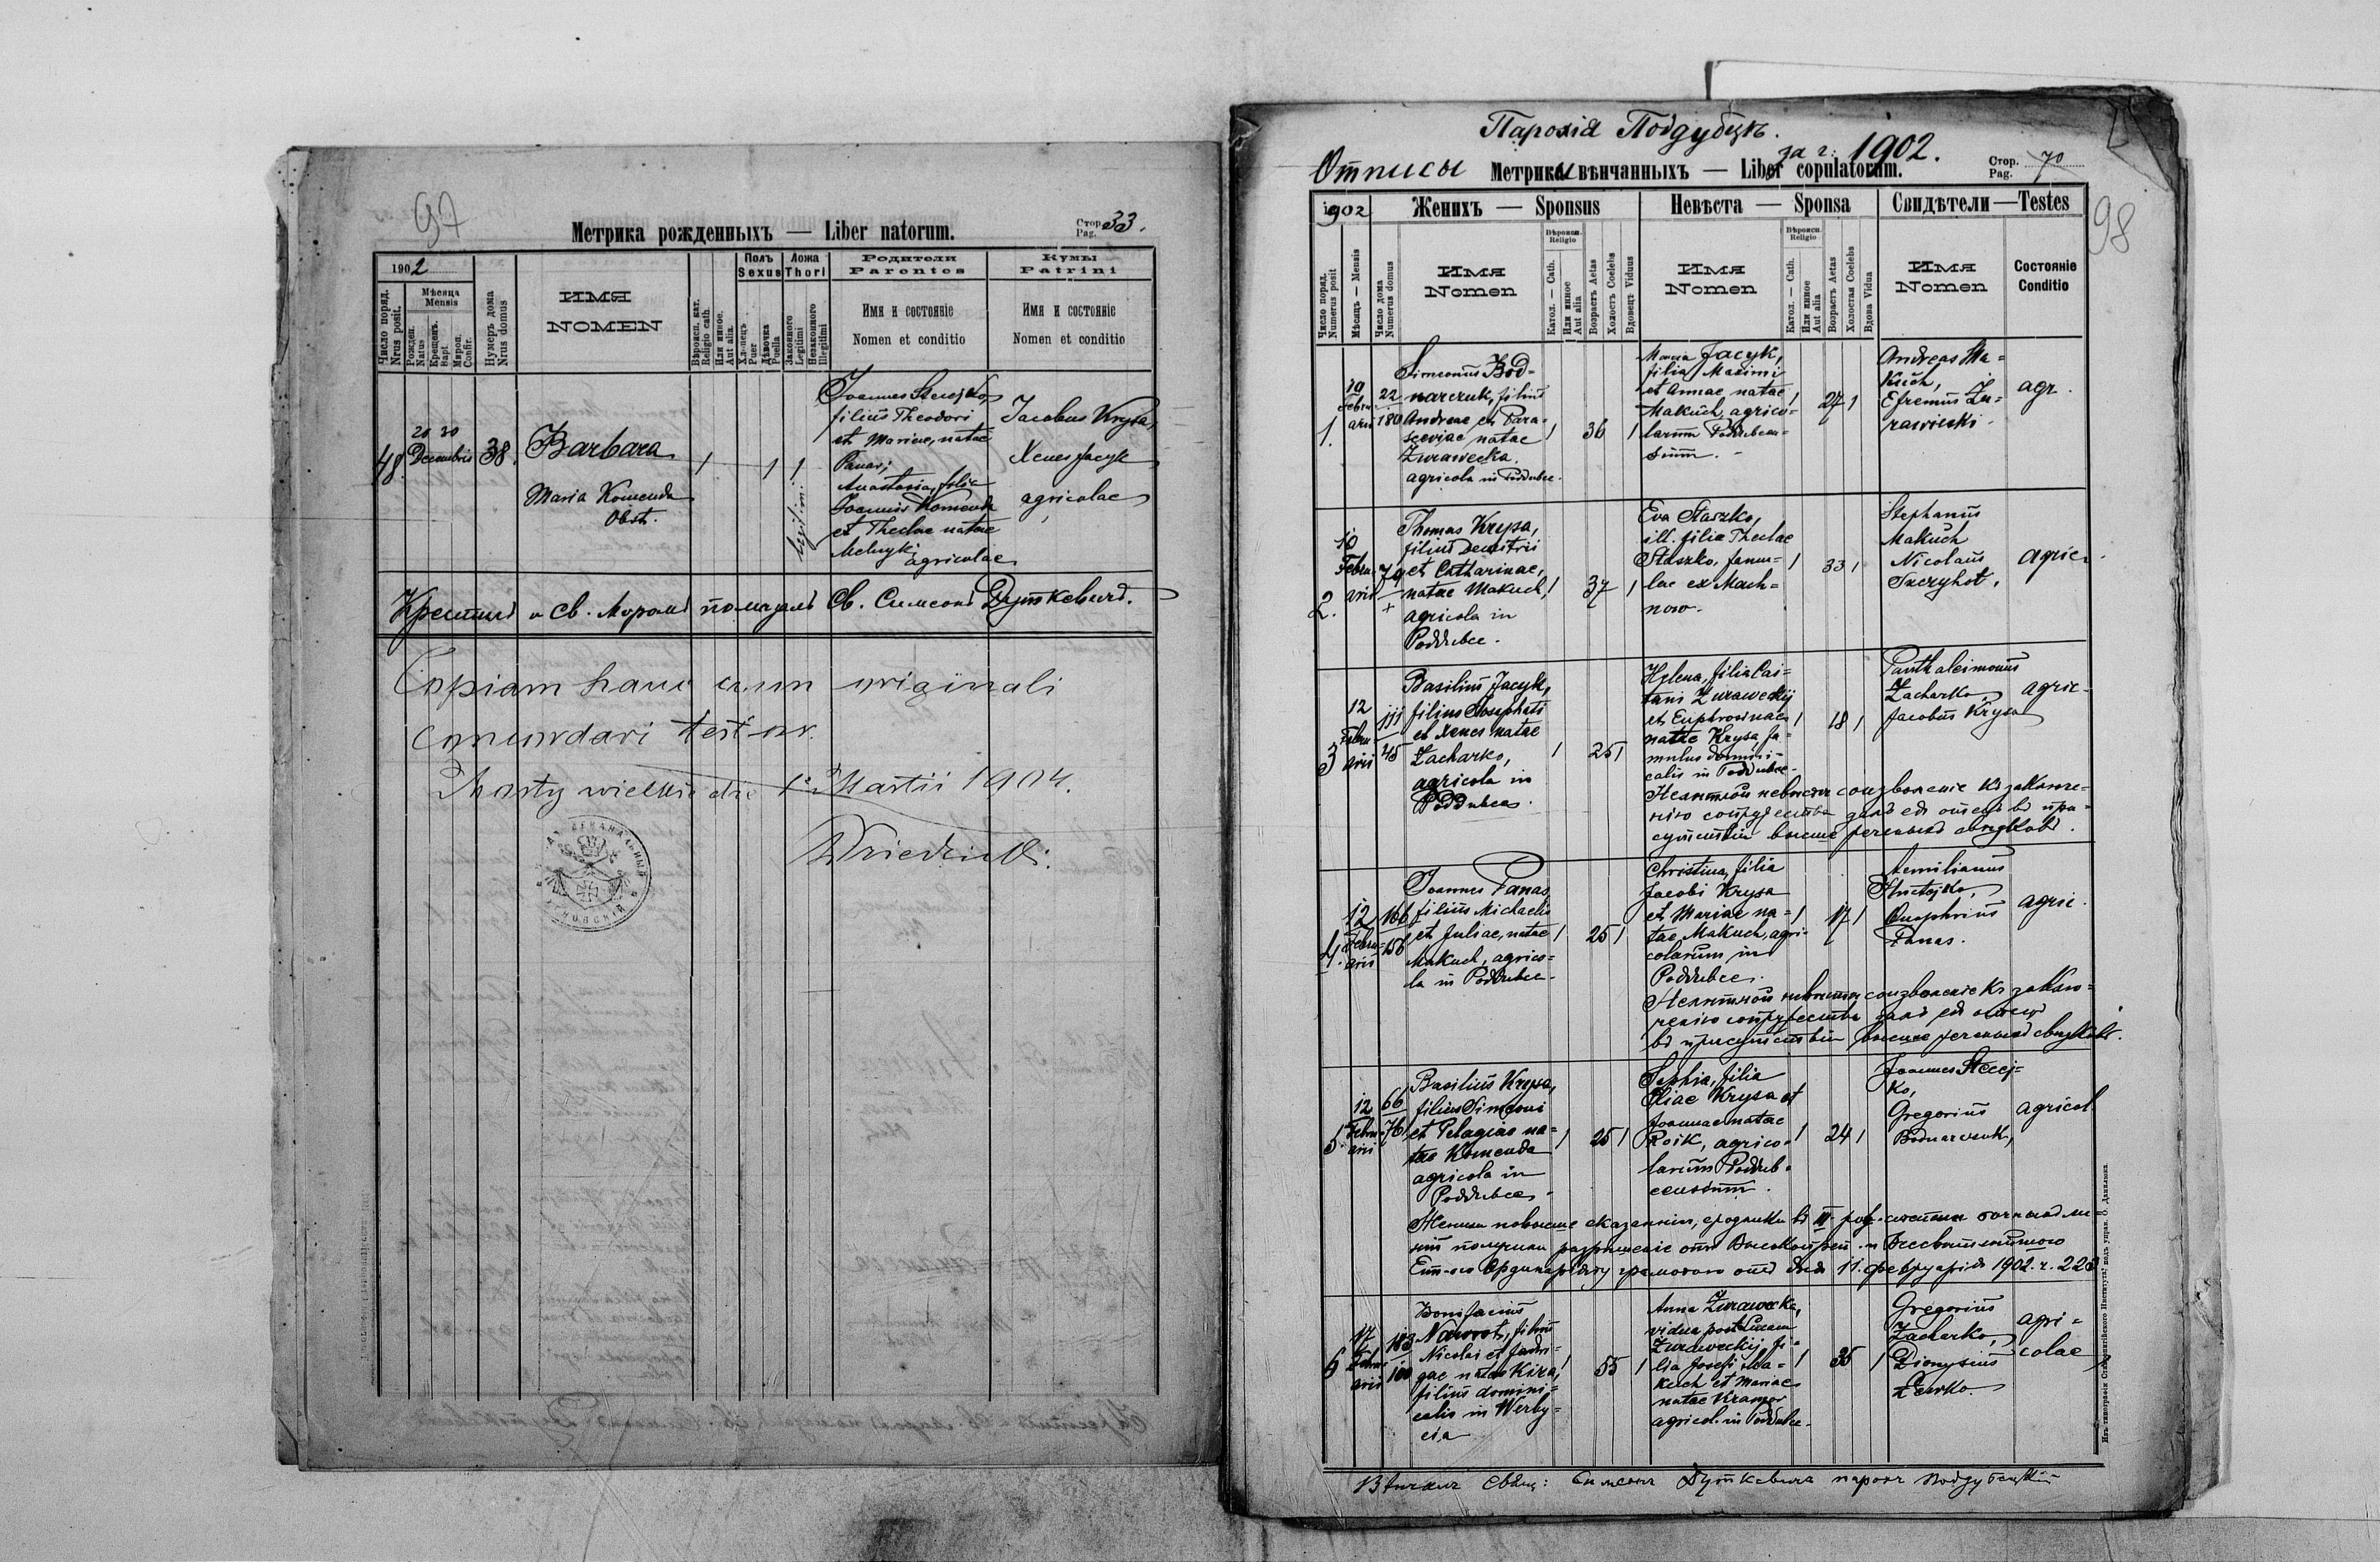 97
Метрика рожденныхъ — Liber natorum.
Стор. Pag. 33.
1902
Число поряд. Nrus posit.
Мѣсяца Mensis
Рожден. Natus
Крещенъ. Bapt.
Мѵроп. Confir.
Нумеръ дома Nrus domus
ИМЯ
NOMEN
Вѣроисп. кат. Religio cath.
Или инное. Aut alia.
Полъ Sexus
Хлопецъ Puer
Дѣвочка Puella
Ложа Thori
Законного Legitimi
Незаконного Illegitimi
Родители
Parentes
Имя и состояніе
Nomen et conditio
Кумы
Patrini
Имя и состояніе
Nomen et conditio
48.
20 30
Decembris
38.
Barbara
Maria Komenda
Obst.
1
1
1
legitim:
Joannes
filius Theodori
et Mariae, natae
Panas;
Anastasia, filia
Joannis Komenda
et Theclae natae
agricolae
Jacobus Krysa,
Xenes Jacyk
agricolae
Крестилъ и св. Мѵромъ помазалъ Св. Симеонъ Дуткевичъ.
Copiam hanc cum originali
concordari testor.
Mosty wielkie die 1 Martii 1904.
Пароxія Поддубецъ.
за г: 1902.
Отписы Метрики вѣнчанныхъ — Liber copulatorum.
Стор. Pag. 70
98
1902
Женихъ — Sponsus
Невѣста — Sponsa
Свидѣтели — Testes
Число поряд. Numerus posit
Мѣсяцъ — Mensis
Число дома Numerus domus
Имя
Nomen
Вѣроисп. Religio
Катол. — Cath.
Или инное Aut alia
Возрастъ Aetas
Холостъ Coelebs
Вдовецъ Viduus
Имя
Nomen
Вѣроисп. Religio
Катол. — Cath.
Или инное Aut alia
Возрастъ Aetas
Холостая Coelebs
Вдова Vidua
Имя
Nomen
Состояніе
Conditio
1.
10
Febru-
arii
22
180
Simeonus Bod-
narczuk, filius
Andreae et Para-
sceviae natae
Żurawecka.
agricola in Poddubce.
1
36
1
Maria Jacyk,
filia Maximi
et Annae natae
Makuch, agrico-
larum Poddubcen-
sium.
1
27
1
Andreas Ma-
kuch,
Efremus Żu-
rawecki.
agr.
2.
10
Febru-
arii
79
+
Thomas Krysa,
filius Demetrii
et Catharinae,
natae Makuch,
agricola in
Poddubce.
1
37
1
Eva Staszko,
ill. filia Theclae
Staszko, famu-
lae ex Mach-
now.
1
33
1
Stephanus
Makuch
Nicolaus
agric.
3
12
Febru-
arii
111
45
Basilius Jacyk,
filius Josephati
et Xenes natae
Zacharko,
agricola in
Poddubce.
1
25
1
Helena, filia Cai-
tani Żuraweckij
et Euphrosinae
natae Krysa fa-
mulus domini-
calis in Poddubce.
1
18
1
Panthaleimonus
Zacharko
Jacobus Krysa
agric.
Нелѣтной невѣстѣ соизволеніе къ заключе-
нію супружества далъ ей отецъ въ при-
сутствіи высше реченыхъ свидѣковъ.
4.
12
Febru-
arii
166
156
Joannes Panas,
filius Michaelis
et Juliae, natae
Makuch, agrico-
la in Poddubce.
1
25
1
Christina, filia
Jacobi Krysa
et Mariae na-
tae Makuch, agri-
colarum in
Poddubce.
1
17
1
Aemilianus
Onuphrius
Panas.
agric.
Нелѣтной невѣстѣ соизволеніе къ заклю-
ченію супружества далъ ей отецъ
въ присутствіи высше реченыхъ свидѣковъ.
5.
12
Febru-
arii
66
76
Basilius Krysa,
filius Simeoni
et Pelagiae na-
tae Komenda
agricola in
Poddubce.
1
25
1
Sophia, filia
Eliae Krysa et
Joannae natae
Roik, agrico-
larum Poddub-
censium.
1
24
1
Joannes Stecej-
ko,
Gregorius
Bodnarczuk,
agricol.
11. февруарія 1902. ч. 223
6
17
Febru-
arii
183
100
Bonifacius
Nawrot, filius
Nicolai et Jadvi-
gae natae Kira,
filius domini-
calis in Werby-
cia
1
55
1
Anna Żurawecka,
vidua post Lucam
Żuraweckij fi-
lia Josefi Ma-
kuch et Mariae
natae Kramar
agricol. in Poddubce.
1
35
1
Gregorius
Zacharko,
Dionysius
agri-
colae
Вѣнчалъ Свящ: Симеонъ Дуткевичъ парохъ Поддубецкій
Изъ типографіи Ставропигійского Института подъ управ. О. Данилюка.